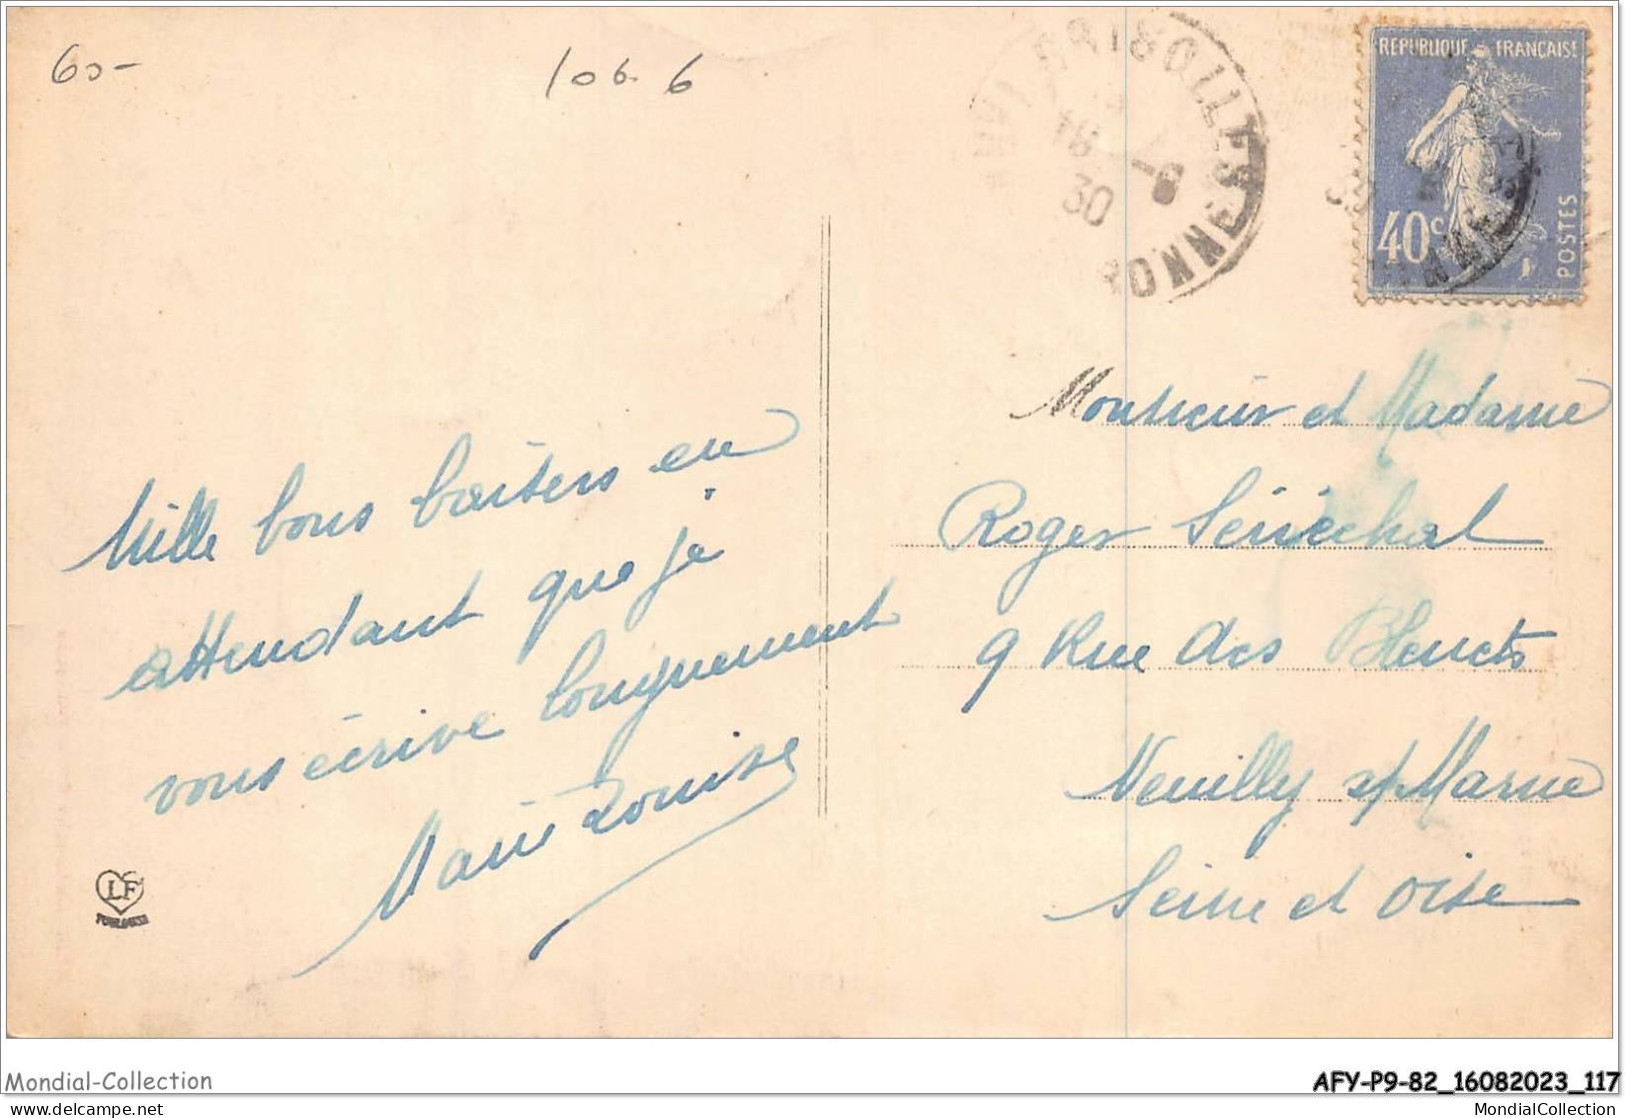 60-
106 6
30
REPUBLIQUE FRANCAISE
40c
POSTES
Mille bons baisers en
attendant que je
vous écrive longuement
Marie Louise
Monsieur et Madame
Roger Sénéchal
9 Rue des Bleuets
Neuilly s/ Marne
Seine et Oise
LF
TOULOUSE
Mondial-Collection
AFY-P9-82_16082023_117
delcampe.net
MondialCollection